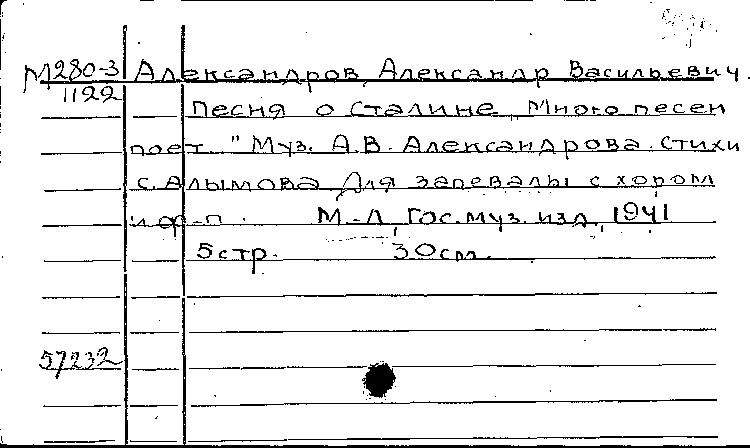 М280-3 Александров, Александр Васильевич.
1122 Песня о Сталине, Много песен
поет..." Муз. А.В. Александрова. Стихи
С. Алымова Для запевалы с хором
и ф-п. М.-Л, Гос. муз. изд, 1941
5 стр. 30 см.
57232